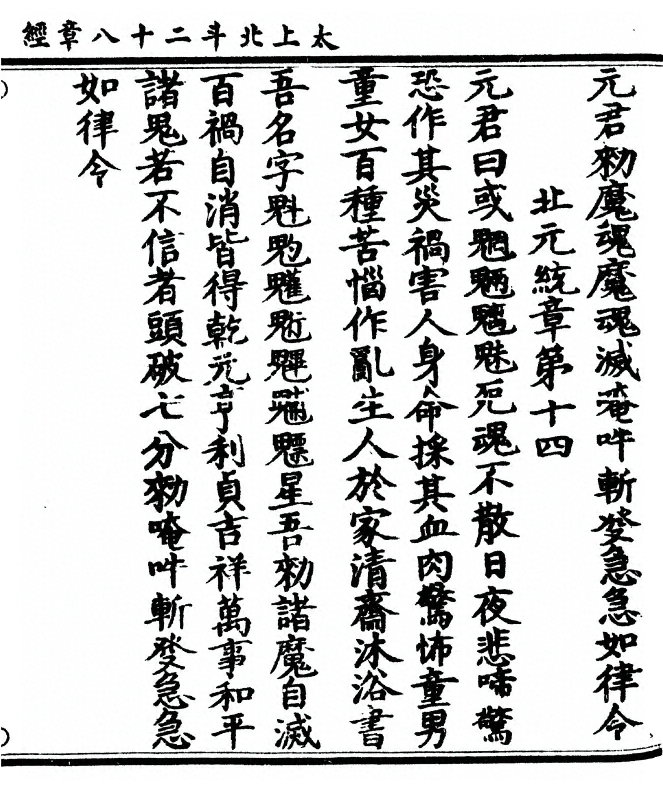 太上北斗二十八章經
元君勑魔魂魔魂滅唵吽斬發急急如律令
北元統章第十四
元君曰或魍魎魑魅死魂不散日夜悲啼驚
恐作其災禍害人身命採其血肉驚怖童男
童女百種苦惱作亂生人於家清齋沐浴書
吾名字魁䰢魓星吾勑諸魔自滅
百禍自消皆得乾元亨利貞吉祥萬事和平
諸鬼若不信者頭破七分勑唵吽斬發急急
如律令